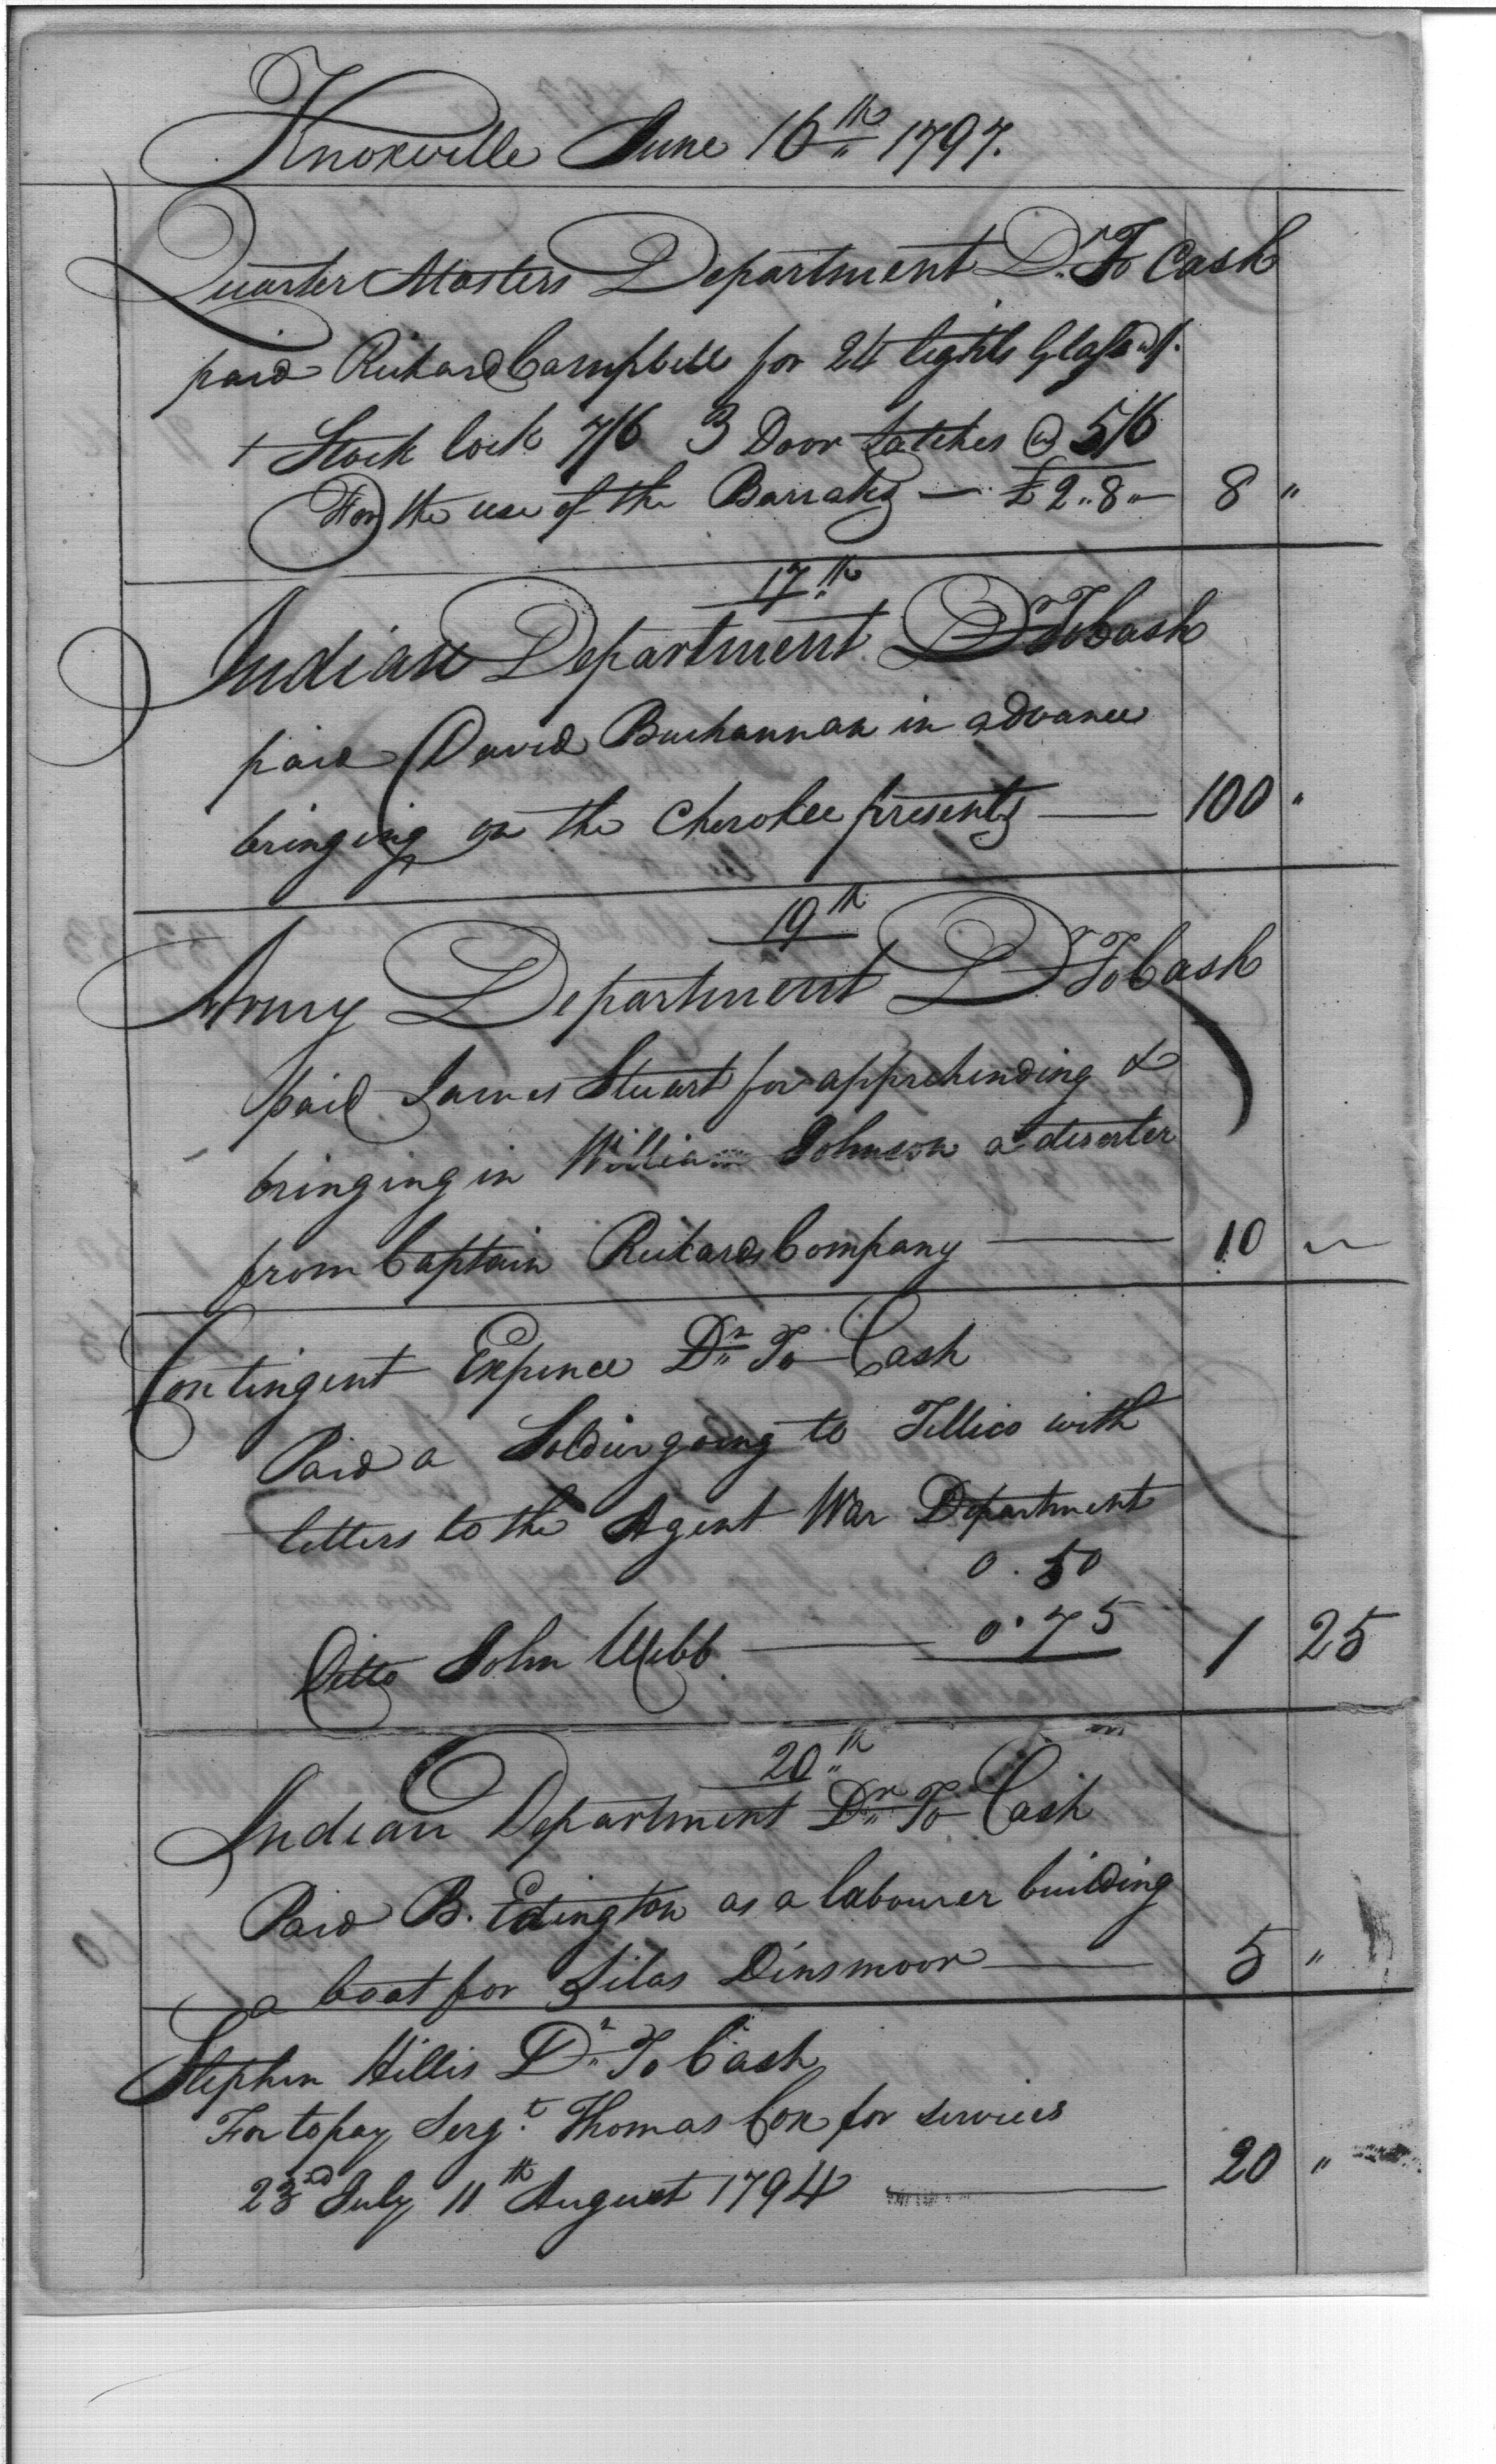 Knoxville June 16th 1797.
Quarter Masters Department Dr. To Cash
paid Richard Campbell for 24 lights Glass @ 1/.
1 Stock lock 7/6 3 Door Latches @ 5/6
For the use of the Barraks — £2..8.. — 8 "
17th
Indian Department Dr To Cash
paid David Buchannan in advance
bringing on the Cherokee presents — 100 "
19th
Army Department Dr To Cash
paid James Stuart for apprehending &
bringing in William Johnson a deserter
from Captain Rickards Company — 10 "
Contingent Expence Dr To Cash
Paid a Soldier going to Tellico with
letters to the Agent War Department
0.50
Ditto John Webb — 0.75 1 25
20th
Indian Department Dr To Cash
Paid B. Edington as a labourer building
a boat for Silas Dinsmoor — 5 "
Stephen Hillis Dr To Cash
For to pay Sergt. Thomas Cox for services
23rd July 11th August 1794 — 20 "